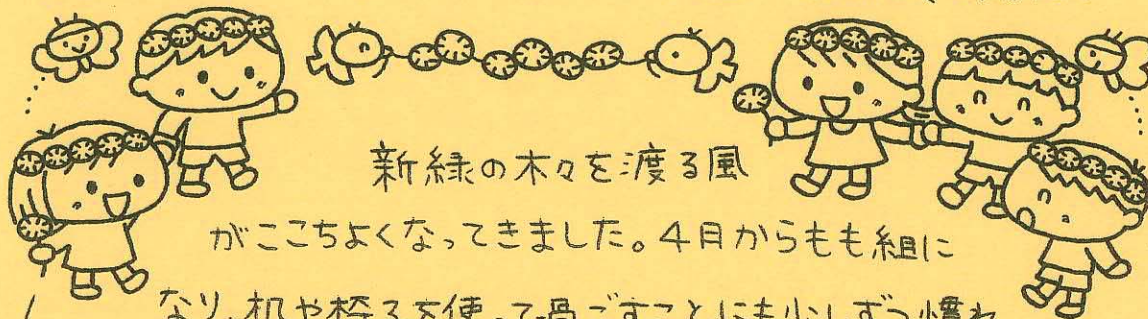 新緑の木々を渡る風
がここちよくなってきました。4月からもも組に
なり、机や椅子を使って過ごすことにも少しずつ慣れ